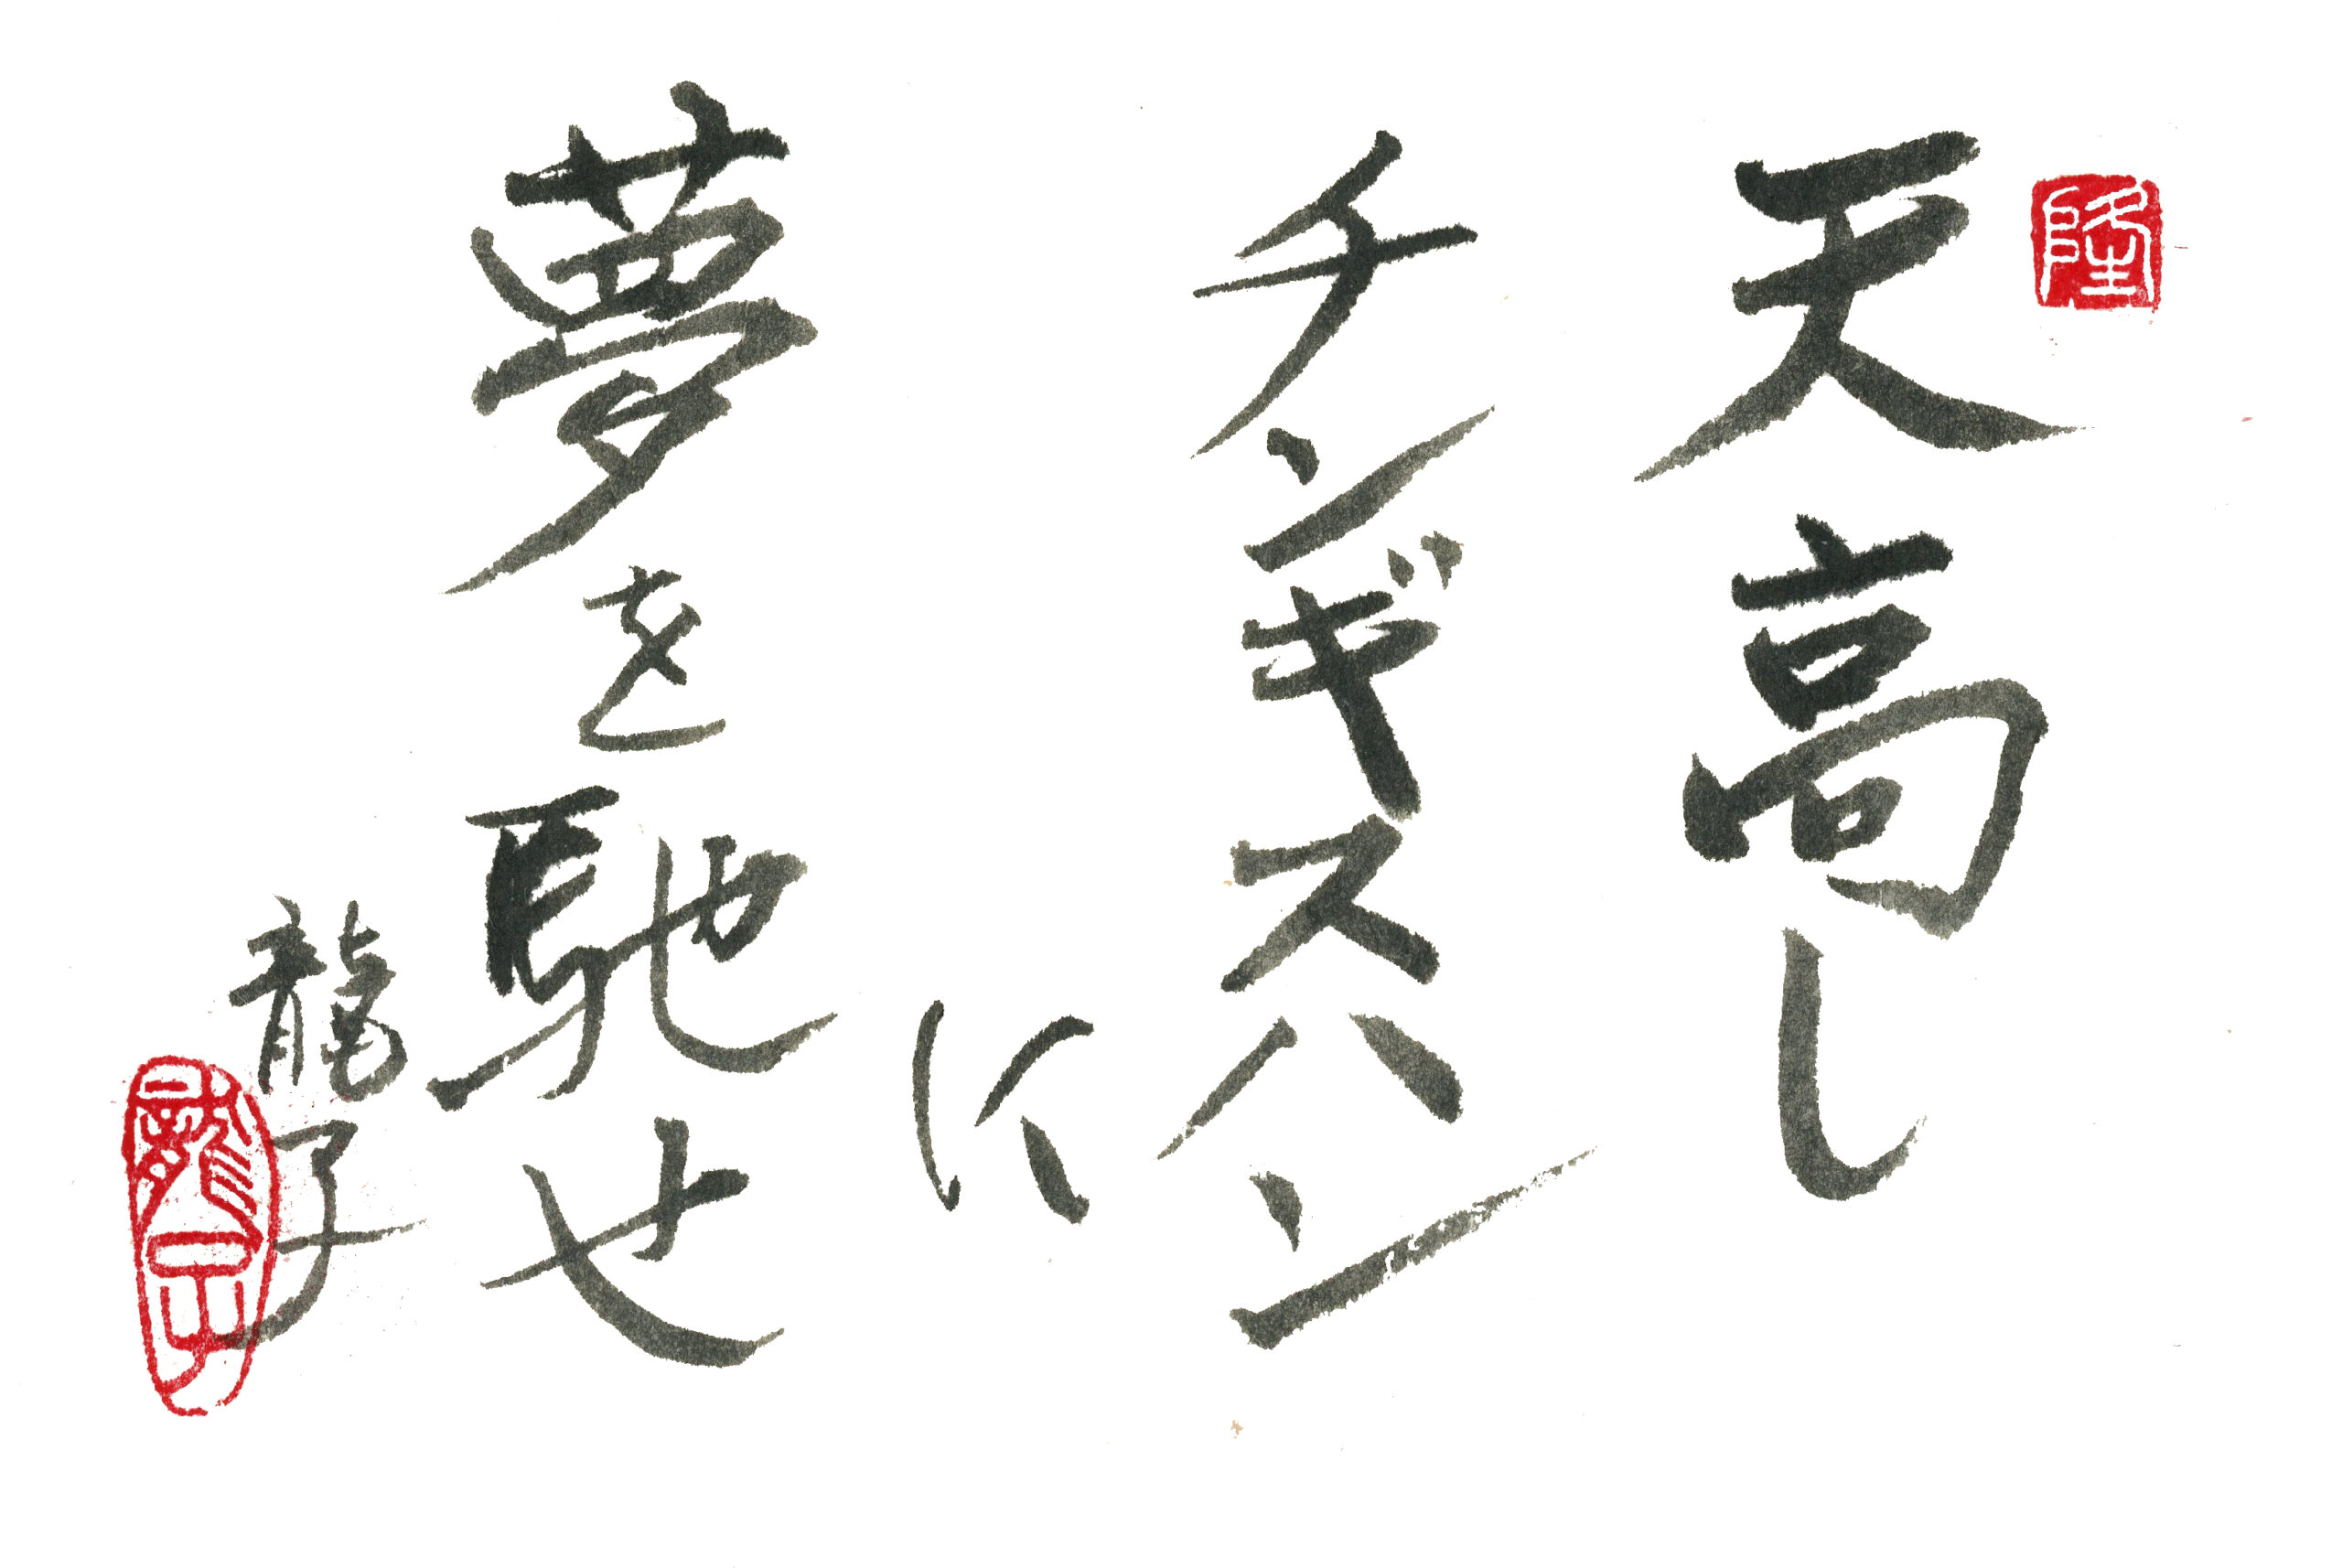 天高し
チンギスハン
に
夢を馳せ
龍子
隆
龍子